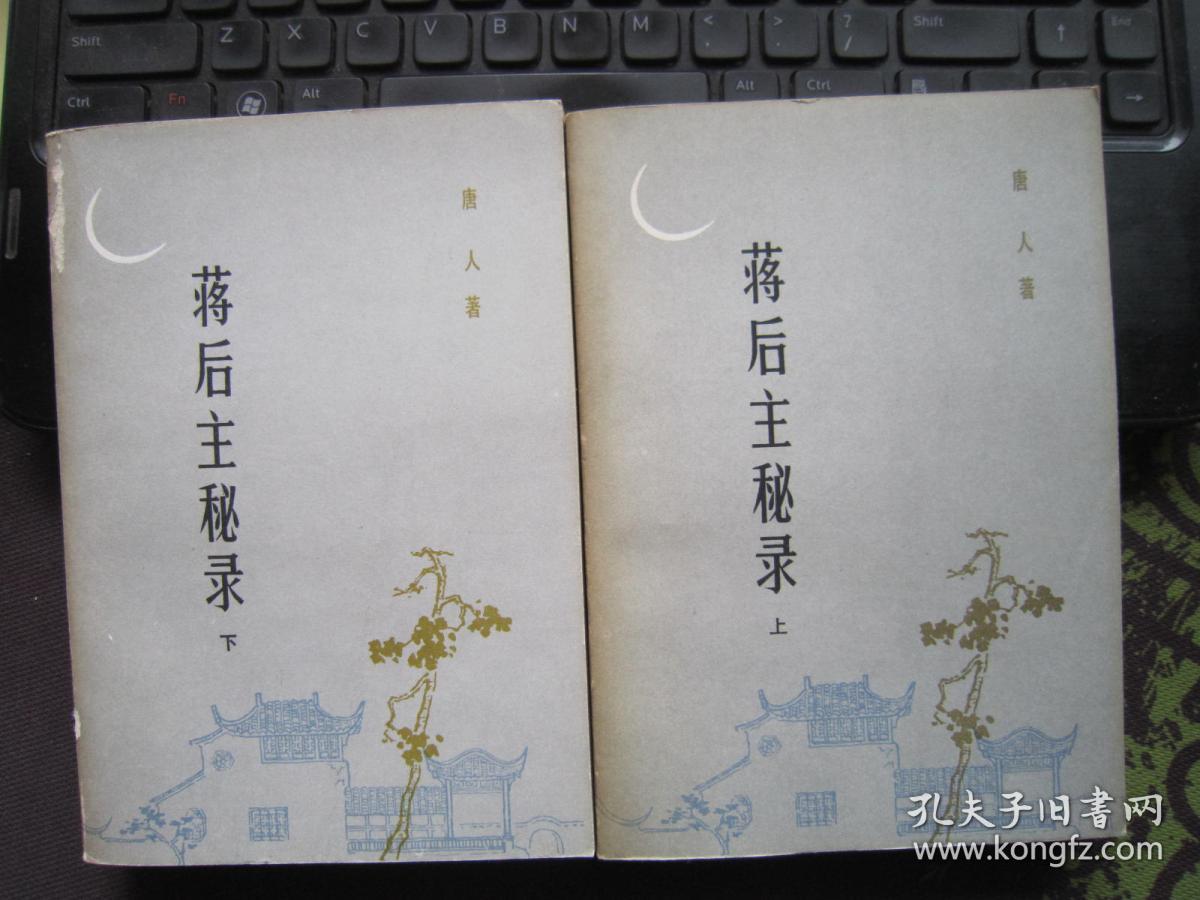 Shift Z X C V B N M < , > . ? / Shift ↑ End
Ctrl Fn Alt Alt Ctrl →
唐人著
蒋后主秘录
下
唐人著
蒋后主秘录
上
孔夫子旧書网
www.kongfz.com